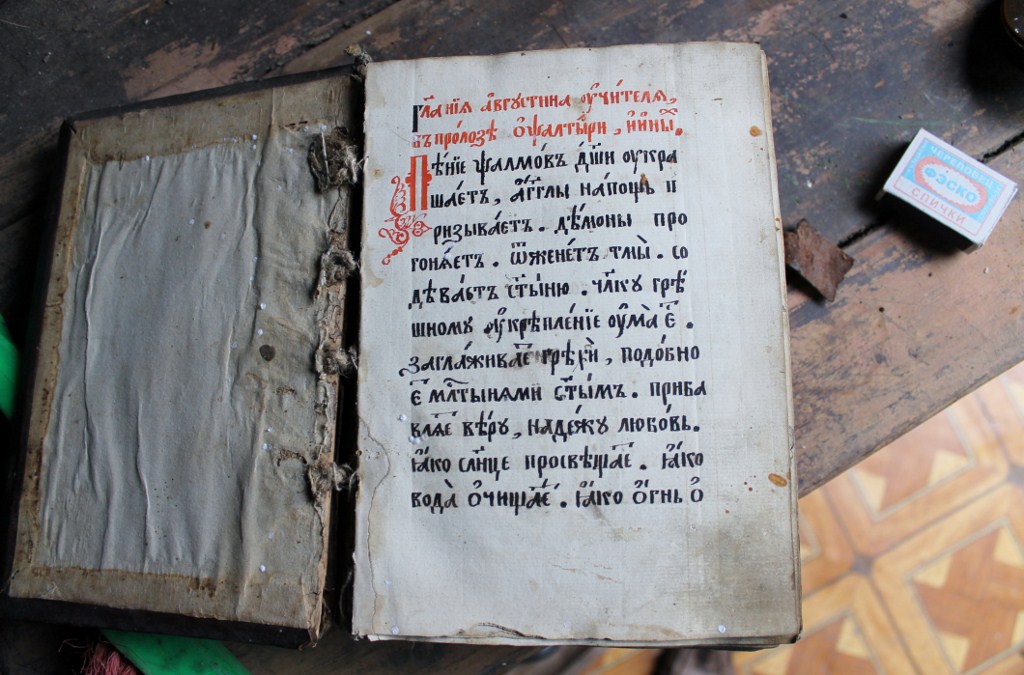 Гл҃анїѧ а҆вгꙋстина ᲂу҆чи́телѧ,
въ проло́зѣ о҆ ѱалты́ри, и҆ и҆ны́х̾.
Пѣ́нїе ѱалмо́въ дш҃и ᲂукра
ша́етъ, а҆́гг҃лы на по́щь п
ризыва́етъ. дѣ́моны про
гонѧ́етъ. ѿжене́тъ тмы̀. со
дѣ́ваетъ ст҃ы́ню. чл҃кꙋ грѣ́
шномꙋ ᲂу҆крѣпле́нїе ᲂу҆ма̀ є҆́.
загла́живае грѣхѝ, подо́бно
є҆́ мл҃тынѧми ст҃ы́мъ. приба
влѧ́е вѣ́рꙋ, наде́жꙋ любо́вь.
ꙗ҆́ко слн҃це просвѣща́е. ꙗ҆́ко
вода̀ ѻ҆чища́е. ꙗ҆́ко ѻ҆́гнь ѻ҆
ЧЕРЕПОВЕЦ
ФЭСКО
СПИЧКИ